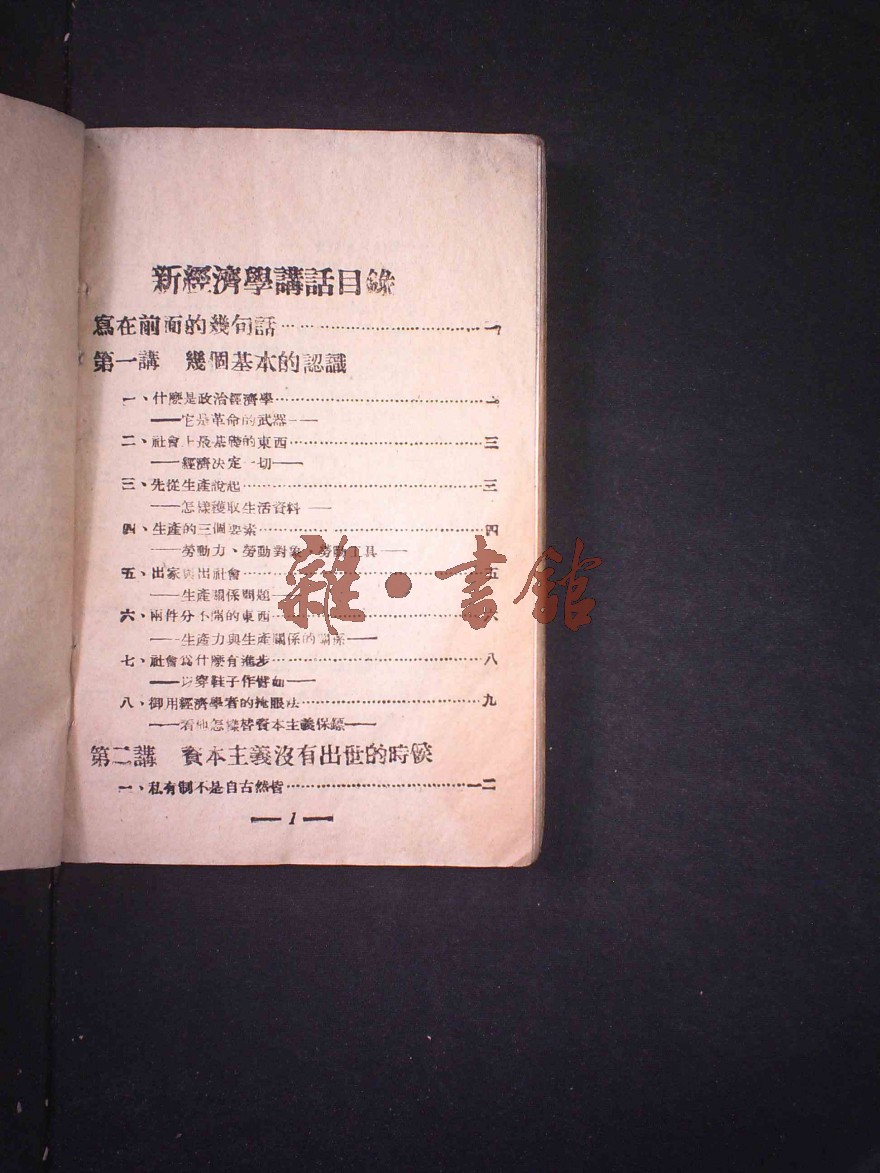 新經濟學講話目錄
寫在前面的幾句話…………………………一
第一講 幾個基本的認識
一、什麼是政治經濟學…………………………
——它是革命的武器——
二、社會上最基礎的東西…………………………三
——經濟決定一切——
三、先從生產說起…………………………三
——怎樣獲取生活資料——
四、生產的三個要素…………………………四
——勞動力、勞動對象、勞動工具——
五、出家與出社會…………………………五
——生產關係問題——
六、兩件分不開的東西…………………………六
——生產力與生產關係的關係——
七、社會為什麼有進步…………………………八
——以穿鞋子作譬如——
八、御用經濟學者的掩眼法…………………………九
——看他怎樣替資本主義保鏢——
第二講 資本主義沒有出世的時候
一、私有制不是自古然皆…………………………一二
— 1 —
雜·書館